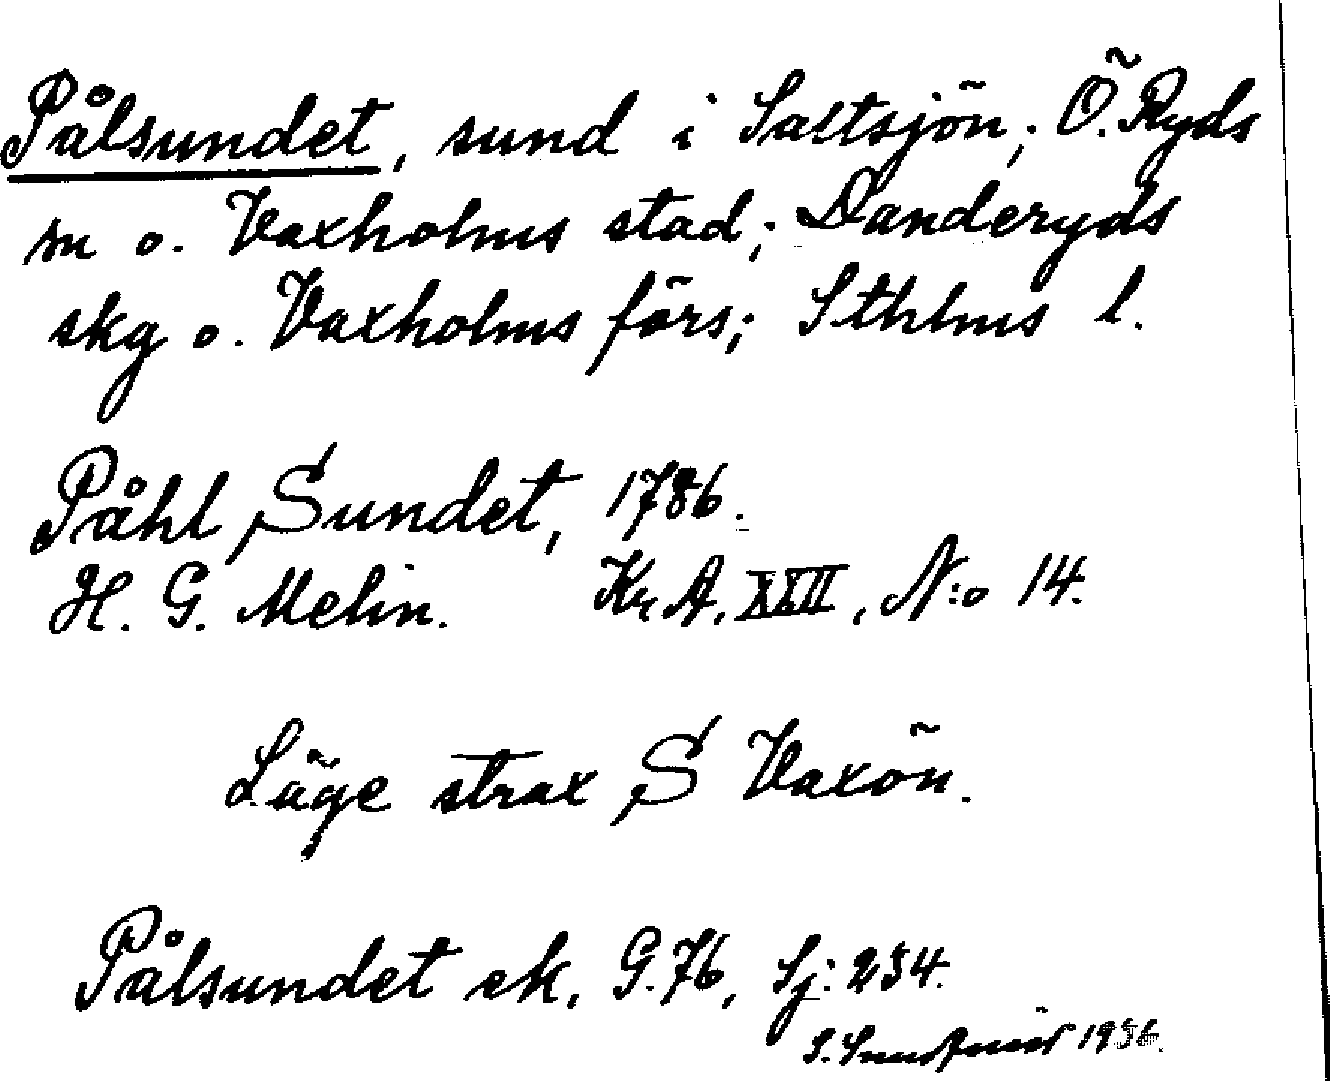 Pålsundet, sund i Saltsjön; Ö. Ryds
sn o. Vaxholms stad; Danderyds
skg o. Vaxholms förs; Sthlms l.
Påhl Sundet, 1786.
H. G. Melin. Kr. A. XXII, N:o 14.
Läge strax S Vaxön.
Pålsundet ek. G. 76, Sj: 254.
S. 1956.